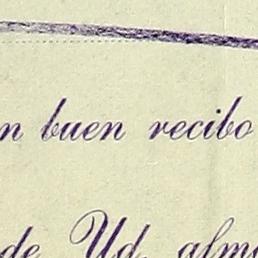 n buen recibo
de Ud. alm